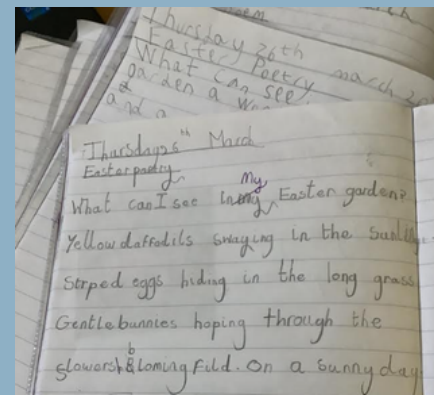 Thursday 26th march
Easter Poetry
What can see
garden a
and a
Thursday26th March
Easter poetry
What can I see in my Easter garden?
Yellow daffodils swaying in the
Strped eggs hiding in the long grass
Gentle bunnies hoping through the
blooming fild. on a sunny day